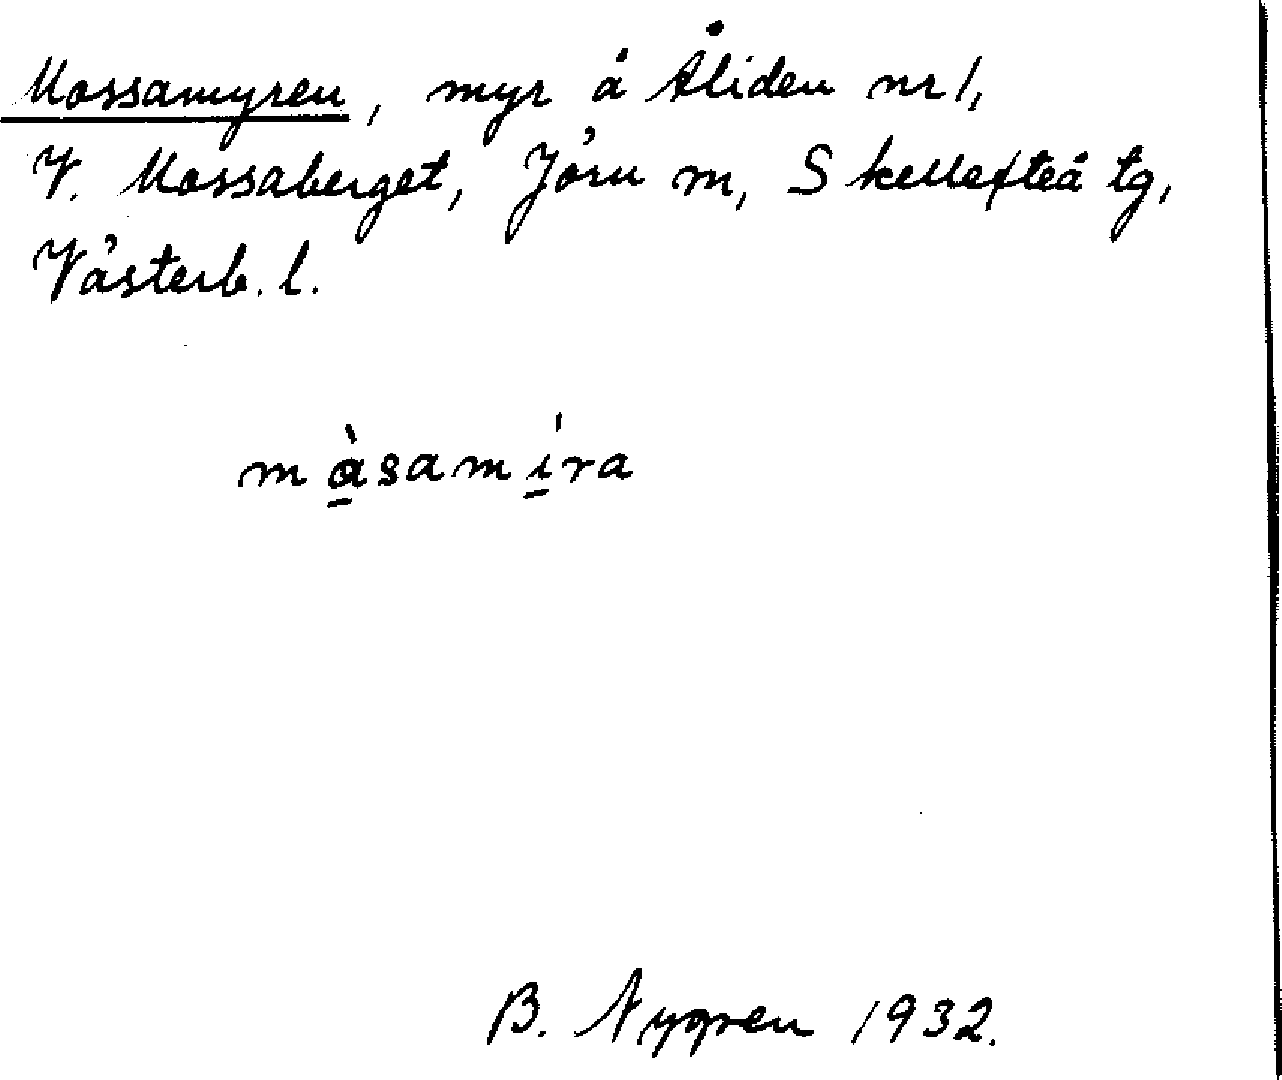 Mossamyren, myr å Åliden nr 1,
V. Mossaberget, Jörn m, Skellefteå tg,
Västerb. l.
mɑ̠̀samı̠́ra
B. Nygren 1932.